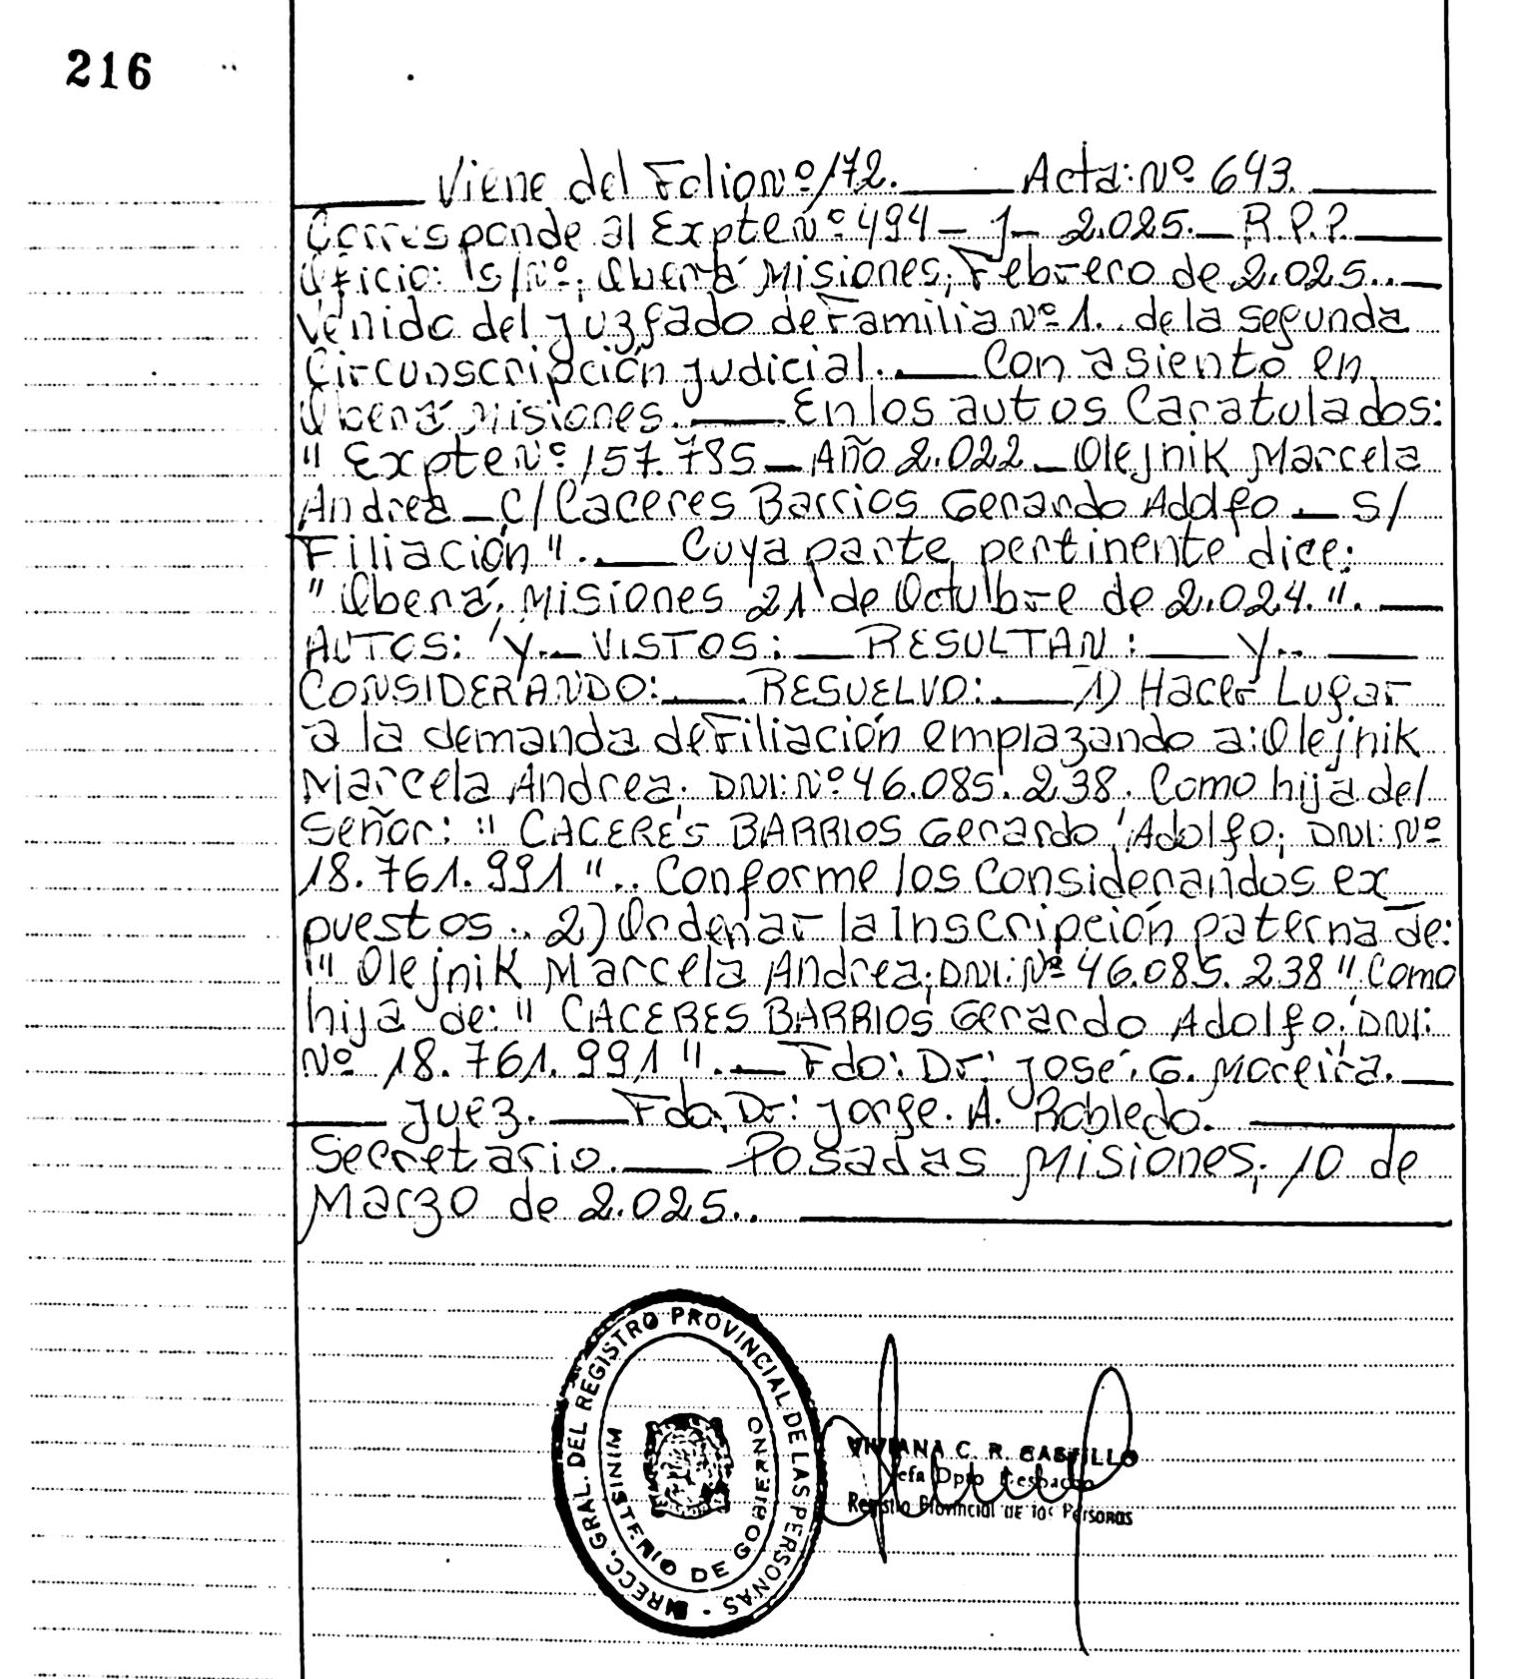 216
Viene del Folio Nº 172. Acta: Nº 643.
Corresponde al Expte Nº 494 – J – 2.025. R.P.P.
Oficio: S/Nº; Oberá Misiones, Febrero de 2.025..
Venido del Juzgado de Familia Nº 1. de la segunda
Circunscripción judicial. Con asiento en
Oberá Misiones. En los autos Caratulados:
" Expte Nº 157.785 – Año 2.022 – Olejnik Marcela
Andrea – C/ Caceres Barrios Gerardo Adolfo – S/
Filiación ". Cuya parte pertinente dice:
" Oberá, Misiones 21 de Octubre de 2.024. ".
AUTOS: Y VISTOS: RESULTAN: Y..
CONSIDERANDO: RESUELVO: 1) Hacer Lugar
a la demanda de Filiación emplazando a: Olejnik
Marcela Andrea; DNI: Nº 46.085.238. Como hija del
Señor: " CACERES BARRIOS Gerardo Adolfo; DNI: Nº
18.761.991 ".. Conforme los Considerandos ex
puestos.. 2) Ordenar la Inscripción paterna de:
" Olejnik Marcela Andrea; DNI: Nº 46.085.238 " Como
hija de: " CACERES BARRIOS Gerardo Adolfo. DNI:
Nº 18.761.991 ". Fdo: Dr: José. G. Moreira.
Juez. Fdo. Dr: Jorge. A. Robledo.
Secretario. Posadas Misiones, 10 de
Marzo de 2.025..
DIRECC. GRAL. DEL REGISTRO PROVINCIAL DE LAS PERSONAS
MINISTERIO DE GOBIERNO
VIVIANA C. R. CASTILLO
Jefa Dpto Despacho
Registro Provincial de las Personas